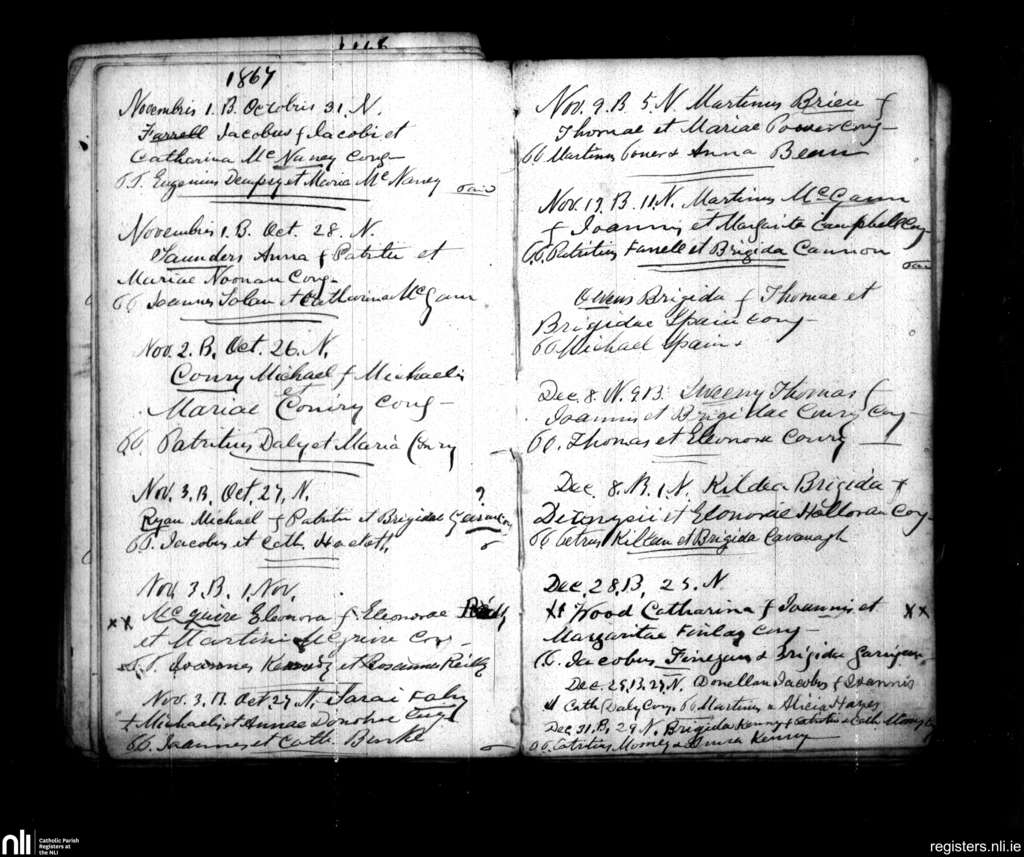 1867
Novembris 1. B. Octobris 31. N.
Farrell Jacobus f Jacobi et
Catharina Mc Naney Cong-
PP. Eugenius Dempsey et Maria Mc Naney
Novembris 1. B. Oct. 28. N.
Saunders Anna f Patritii et
Mariae Noonan Cong-
PP Joannes Tolan et Catharina McGann
Nov. 2. B. Oct. 26. N.
Conry Michael f Michaelis
et
Mariae Conry cong-
PP. Patritius Daly et Maria Conry
Nov. 3. B. Oct. 27. N.
?
Ryan Michael f Patritii et Brigidae
PP. Jacobus et Cath.
Nov. 3. B. 1. Nov.
xx McGuire Eleonora f Eleonorae Reilly
et Martini McGuire Con-
PP. Joannes Kennedy et Roseanna Reilly
Nov. 3. B. Oct 27. N. Sarai Fahy
f Michaelis et Annae Donohue
PP. Joannes et Cath. Burke
Nov. 9. B 5. N. Martinus Brien f
Thomae et Mariae Power Cong-
PP Martinus Power & Anna Bean
B. 11. N. Martinus McGann
f Joannis et Margarita Campbell Con
PP. Patritius Farrell et Brigida Cannon
Owens Brigida f Thomae et
Brigidae Spain cong-
PP Michael Spain
Dec. 8. N. 9 B. Sweeny Thomas f
Joannis et Brigidae Conry Con-
PP. Thomas et Eleonora Conry
Dec. 8. B. 1. N. Kildea Brigida f
Dionysii et Elonorae Halloran Con-
PP Petrus Killeen et Brigida Cavanagh
Dec. 28. B. 25. N
Wood Catharina f Joannis et xx
Margaritae Finlay Cong-
PP. Jacobus Finegan & Brigida
B. 27. N. Donellan Jacobus f Joannis
& Cath. Daly Con. PP Martinus & Alicia Hayes
Dec. 31. B. 29. N. Brigida Kenny f Patritii & Cath.
PP. Patritius & Kenny
nli
Catholic Parish
Registers at
the NLI
registers.nli.ie